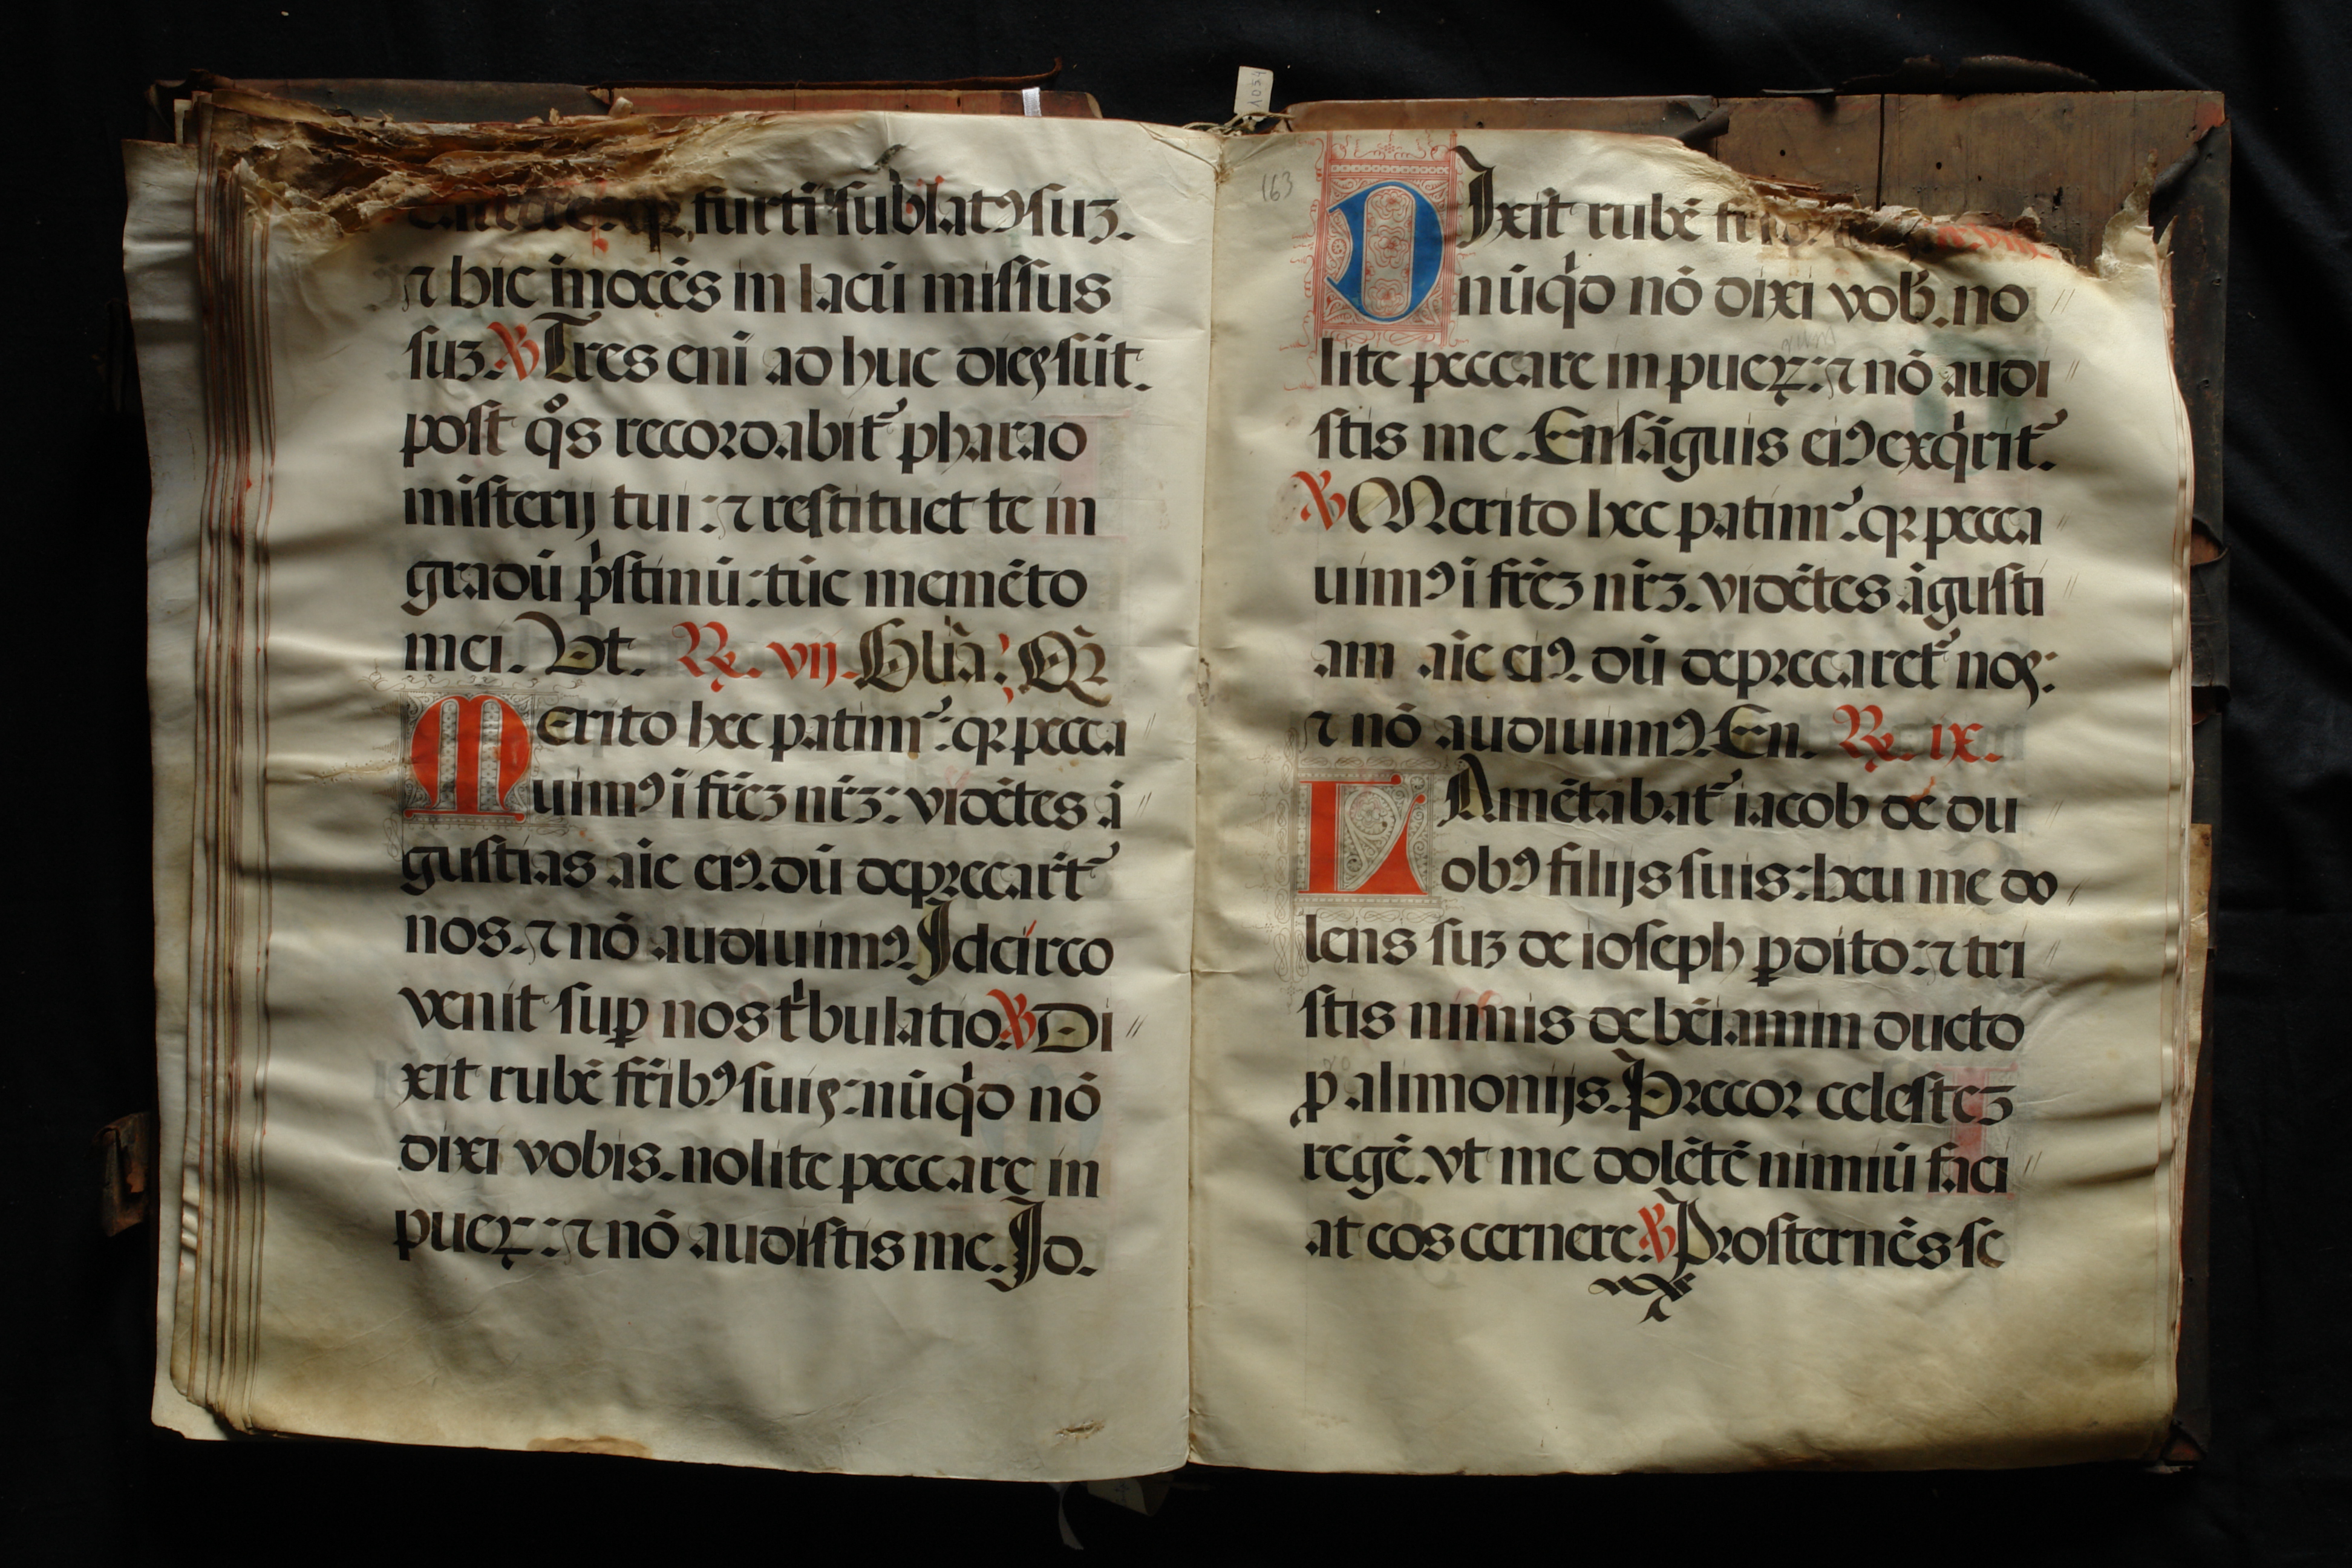 furti sublatꝰ suꝫ.
⁊ hic īnocēs in lacū missus
suꝫ. ℣ Tres eni ad huc dies sūt.
post qͦs recordabit᷑ pharao
misterij tui: ⁊ restituet te in
gradū pͥstinū: tūc memēto
mei. Vt. ℟. vij. Glīa: Qꝛ
Merito hec patim᷑: qꝛ pecca
uimꝰ ī fr̄eꝫ nr̄ꝫ: vidētes ā
gustias aīe eiꝰ. dū deprecar̄t᷑
nos. ⁊ nō audiuimꝰ. Jdcirco
venit suꝑ nos tͥbulatio. ℣ Di
xit rubē fr̄ibꝰ suis: nūqͥd nō
dixi vobis. nolite peccare in
pueꝝ: ⁊ nō audistis me. Jd.
163
DJxit rubē
nūqͥd nō dixi vob̄. no
lite peccare in pueꝝ: ⁊ nō audi
stis me. En sāguis eiꝰ exqͥrit᷑.
℣ Merito hec patim᷑: qꝛ pecca
uimꝰ ī fr̄eꝫ nr̄ꝫ. vidētes āgusti
am aīe eiꝰ. dū deprecaret᷑ nos:
⁊ nō audiuimꝰ. En. ℟. ix.
LAmētabat᷑ iacob de du
obꝰ filijs suis: heu me do
lens suꝫ de ioseph ꝑdito: ⁊ tri
stis nimis de bēiamin ducto
ꝓ alimonijs. Precor celesteꝫ
regē. vt me dolētē nimiū faci
at eos cernere. ℣ Prosternēs se
1034